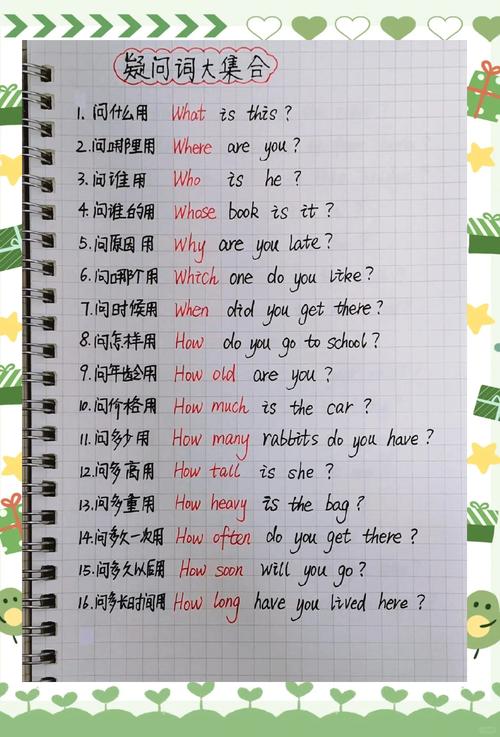 疑问词大集合
1. 问什么用 What is this?
2. 问哪里用 Where are you?
3. 问谁用 Who is he?
4. 问谁的用 Whose book is it?
5. 问原因用 Why are you late?
6. 问哪个用 Which one do you like?
7. 问时候用 When did you get there?
8. 问怎样用 How do you go to school?
9. 问年龄用 How old are you?
10. 问价格用 How much is the car?
11. 问多少用 How many rabbits do you have?
12. 问多高用 How tall is she?
13. 问多重用 How heavy is the bag?
14. 问多久一次用 How often do you get there?
15. 问多久以后用 How soon will you go?
16. 问多长时间用 How long have you lived here?